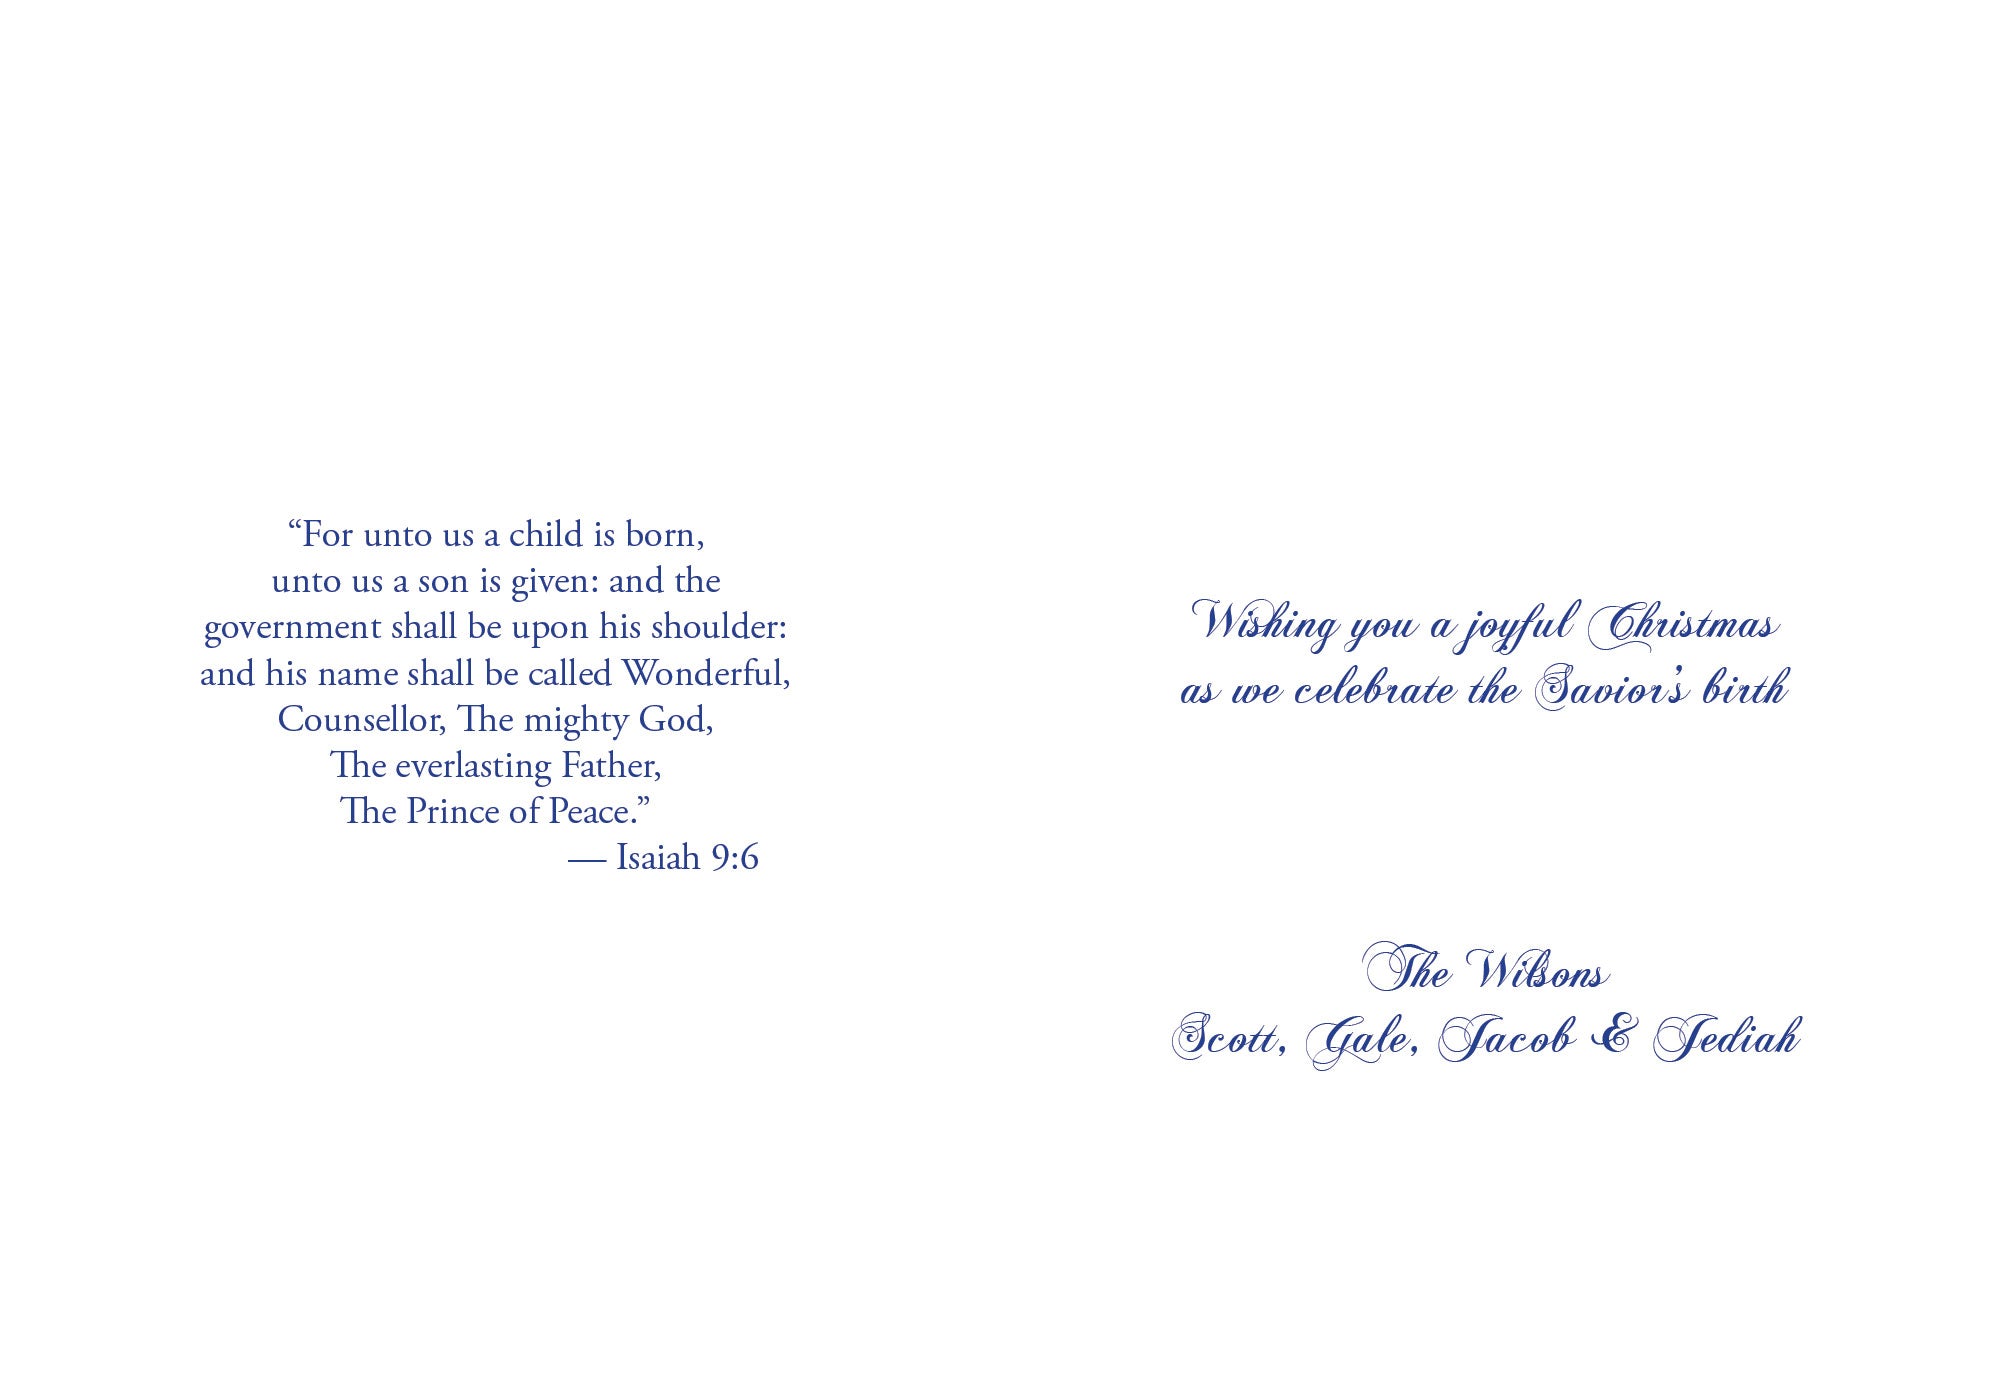 “For unto us a child is born,
unto us a son is given: and the
government shall be upon his shoulder:
and his name shall be called Wonderful,
Counsellor, The mighty God,
The everlasting Father,
The Prince of Peace.”
— Isaiah 9:6
Wishing you a joyful Christmas
as we celebrate the Savior’s birth
The Wilsons
Scott, Gale, Jacob & Jediah